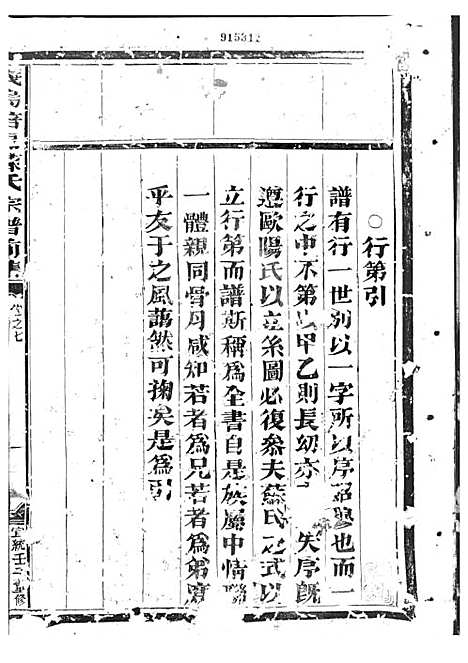 915312
○行第引
譜有行一世別以一字所以序昭穆也而一
行之中不第以甲乙則長幼亦失序旣
遵歐陽氏以立系圖必復參夫蘇氏之式以
立行第而譜斯稱爲全書自是族屬中情聯
一體親同骨月咸知若者爲兄若者爲弟
乎友于之風藹然可掬矣是爲引
義烏 氏宗譜前集
卷之七
一
宣統壬子重修